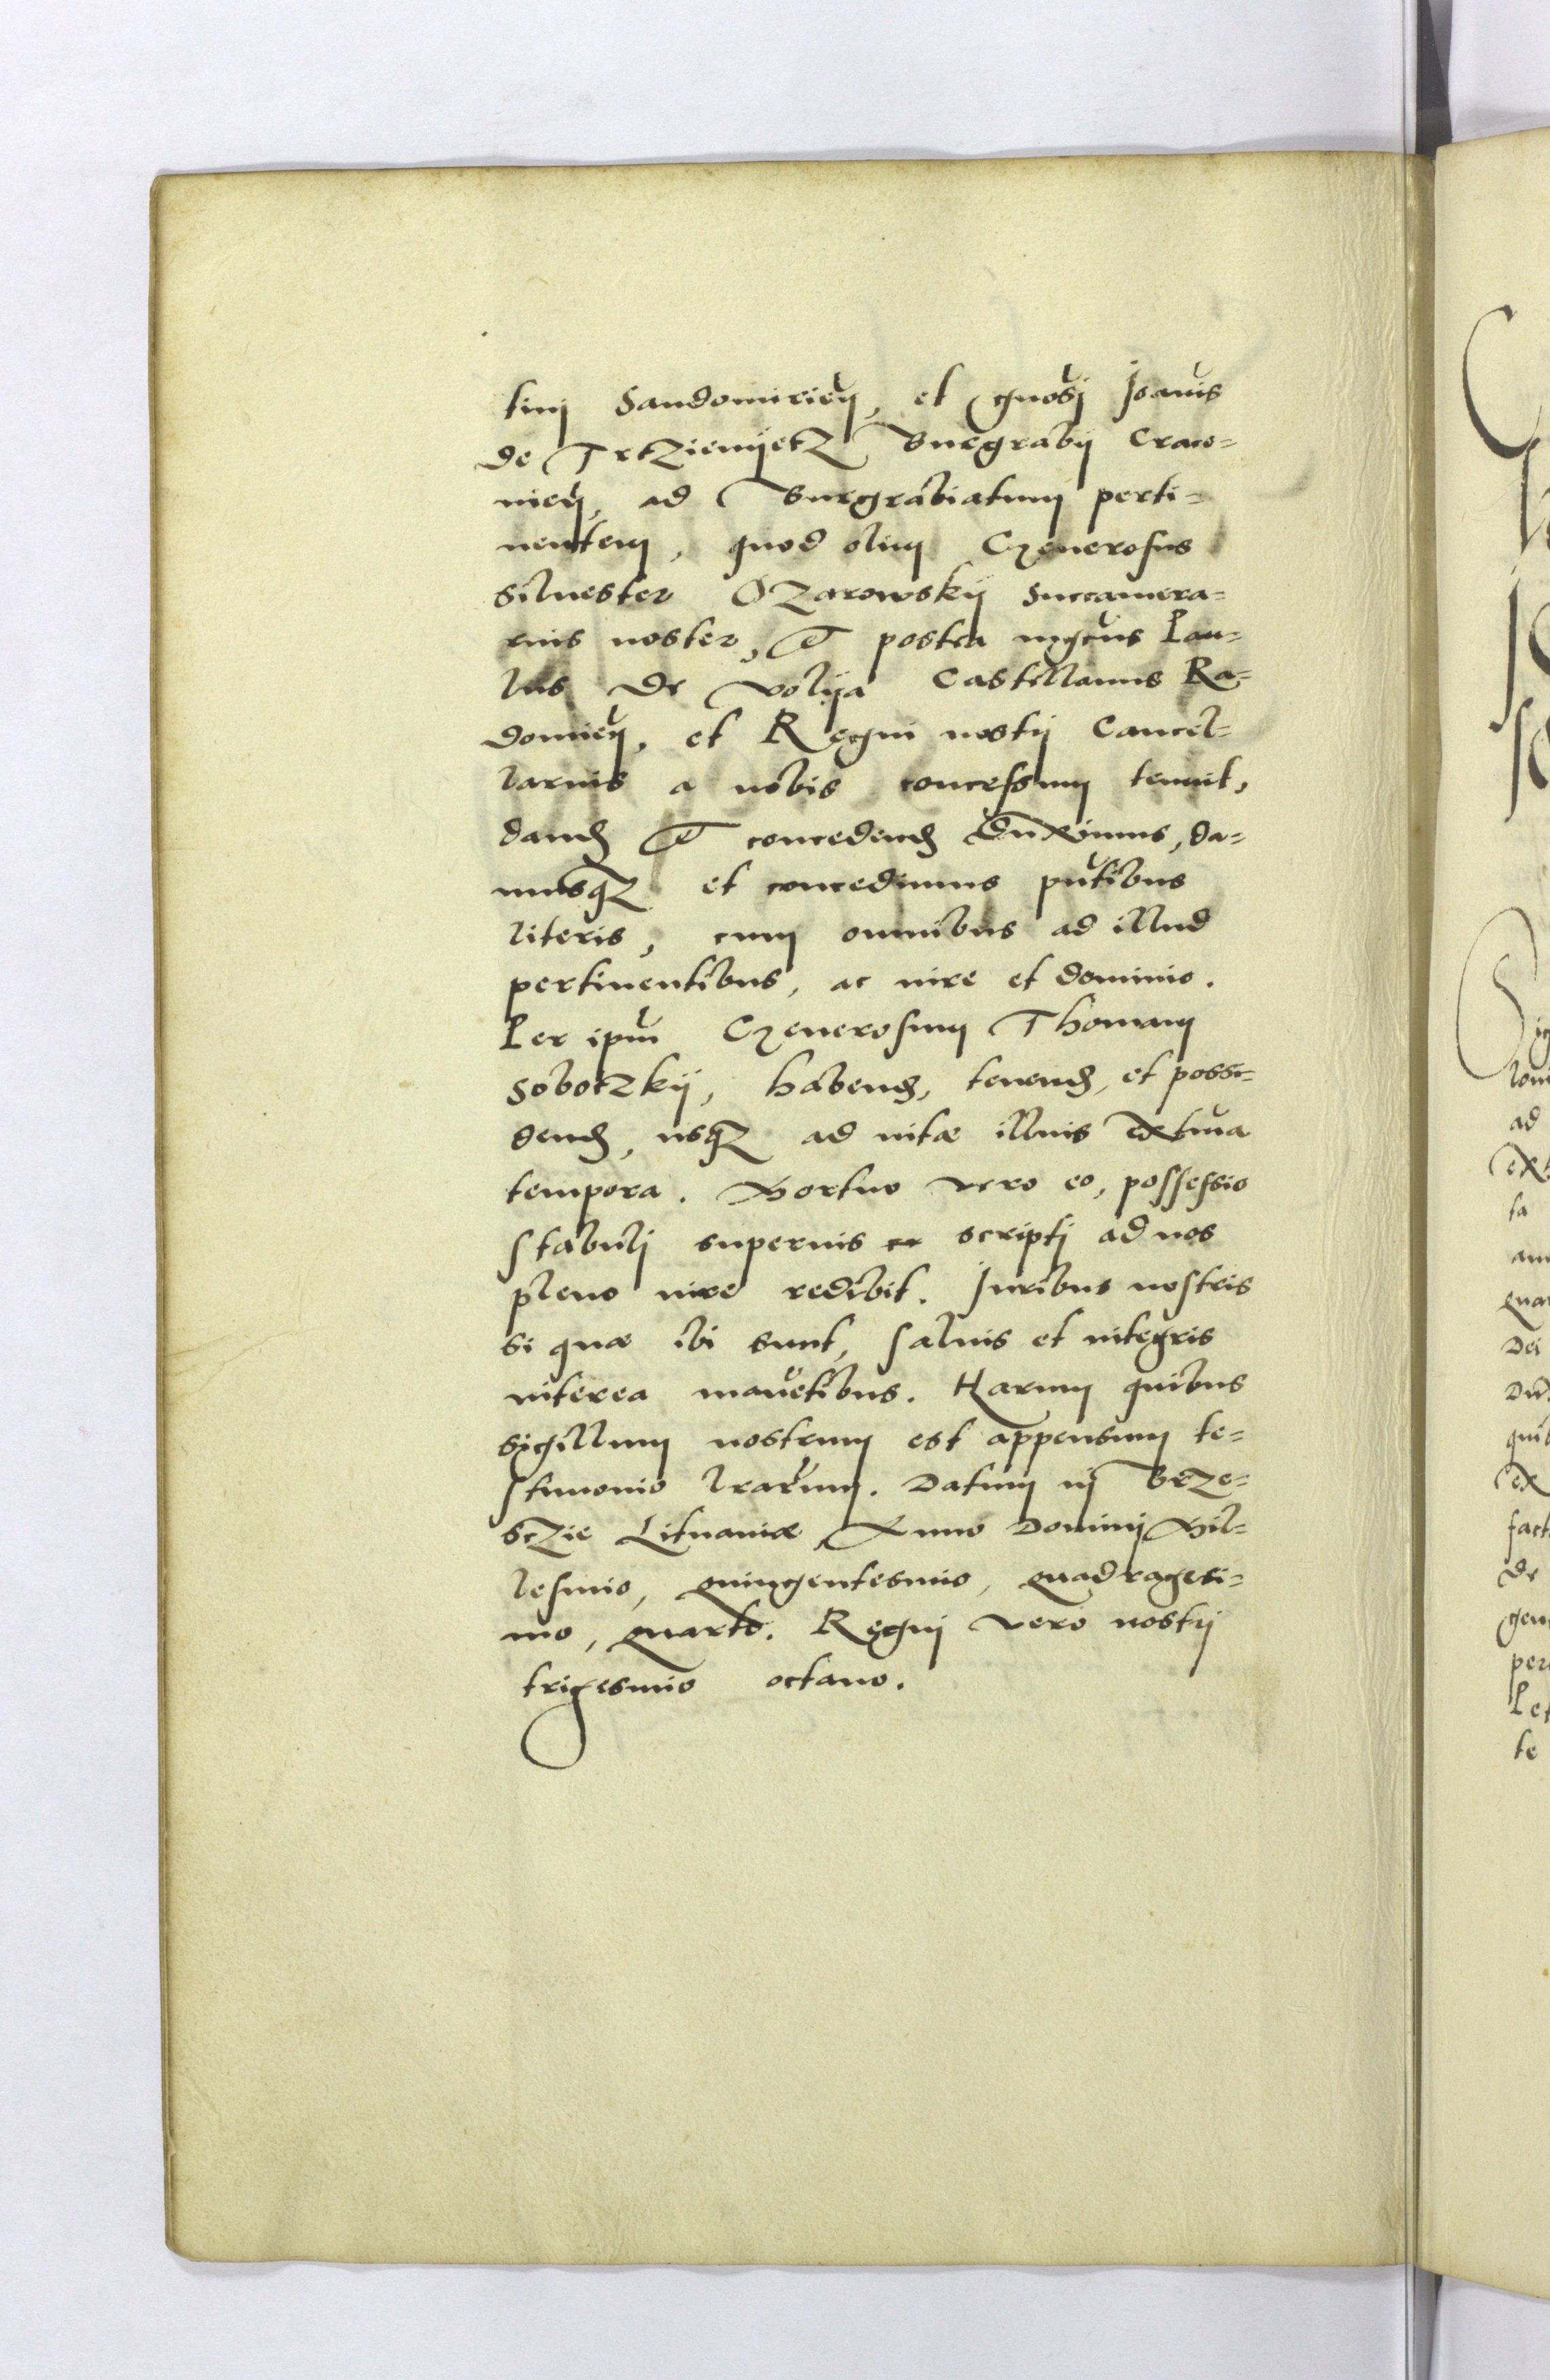 tini Sandomirień, et gnosi Joañis
de TrtZiemyetZ Burgrabij Craco-
nień, ad Burgrabiatum perti-
nentem, quod olim Generosus
Siluester OZarowskij Succamera-
rius noster, et postea mgcus Pau-
lus de Volija Castellanus Ra-
domień, et Regni nostij Cancel-
larius a nobis concessum tenuit,
dand et concedend duximus, da-
musqZ et concedimus pñtibus
literis, cum omnibus ad illud
pertinentibus, ac iure et dominio.
Per ipm̃ Generosum Thomam
SobotZkij, habend, tenend, et possi-
dend, usqZ ad uitæ illius extrma
tempora. Mortuo vero eo, possessio
stabuli superius scripti ad nos
pleno iure redibit. Juribus nostris
si quæ ibi sunt, saluis et integris
interea mañetibus. Harum quibus
sigillum nostrum est appensum te-
stimonio lrarum. Datum in BrZe-
scZie Lituaniæ, Anno Domini Mil-
lesimo, quingentesimo, quadragesi-
mo, quarto. Regni vero nostij
trigesimo octauo.
ad
ta
quar
Dei
quib
ex
fact
de
gen
per
Pet
te